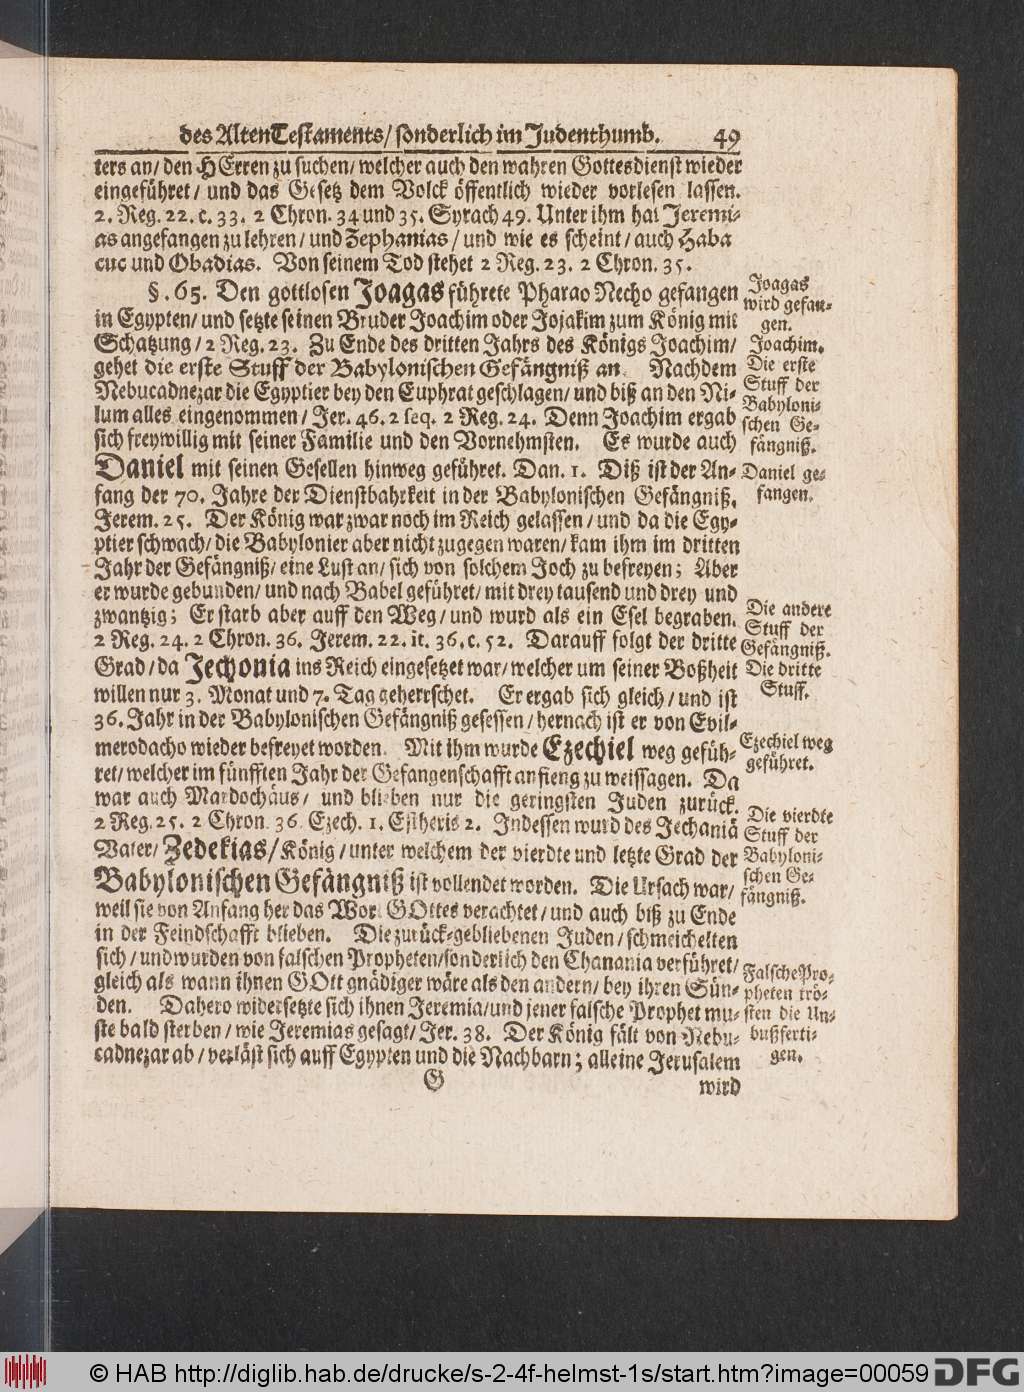 des Alten Testaments/ sonderlich im Judenthumb. 49
ters an/ den HErren zu suchen/ welcher auch den wahren Gottesdienst wieder
eingeführet/ und das Gesetz dem Volck öffentlich wieder vorlesen lassen.
2. Reg. 22. c. 33. 2 Chron. 34 und 35. Syrach 49. Unter ihm hat Jeremi-
as angefangen zu lehren/ und Zephanias/ und wie es scheint/ auch Haba
cuc und Obadias. Von seinem Tod stehet 2 Reg. 23. 2 Chron. 35.
§. 65. Den gottlosen Joagas führete Pharao Necho gefangen
in Egypten/ und setzte seinen Bruder Joachim oder Jojakim zum König mit
Schatzung/ 2 Reg. 23. Zu Ende des dritten Jahrs des Königs Joachim/
gehet die erste Stuff der Babylonischen Gefängniß an. Nachdem
Nebucadnezar die Egyptier bey den Euphrat geschlagen/ und biß an den Ni-
lum alles eingenommen/ Jer. 46. 2 seq. 2 Reg. 24. Denn Joachim ergab
sich freywillig mit seiner Familie und den Vornehmsten. Es wurde auch
Daniel mit seinen Gesellen hinweg geführet. Dan. 1. Diß ist der An-
fang der 70. Jahre der Dienstbahrkeit in der Babylonischen Gefängniß.
Jerem. 25. Der König war zwar noch im Reich gelassen/ und da die Egy-
ptier schwach/ die Babylonier aber nicht zugegen waren/ kam ihm im dritten
Jahr der Gefängniß/ eine Lust an/ sich von solchem Joch zu befreyen; Aber
er wurde gebunden/ und nach Babel geführet/ mit drey tausend und drey und
zwantzig; Er starb aber auff den Weg/ und wurd als ein Esel begraben.
2 Reg. 24. 2 Chron. 36. Jerem. 22. it. 36. c. 52. Darauff folgt der dritte
Grad/ da Jechonia ins Reich eingesetzet war/ welcher um seiner Boßheit
willen nur 3. Monat und 7. Tag geherrschet. Er ergab sich gleich/ und ist
36. Jahr in der Babylonischen Gefängniß gesessen/ hernach ist er von Evil-
merodacho wieder befreyet worden. Mit ihm wurde Ezechiel weg gefüh-
ret/ welcher im fünfften Jahr der Gefangenschafft anfieng zu weissagen. Da
war auch Mardochäus/ und blieben nur die geringsten Juden zurück.
2 Reg. 25. 2 Chron. 36. Ezech. 1. Estheris 2. Indessen wurd des Jechaniä
Vater/ Zedekias/ König/ unter welchem der vierdte und letzte Grad der
Babylonischen Gefängniß ist vollendet worden. Die Ursach war/
weil sie von Anfang her das Wort GOttes verachtet/ und auch biß zu Ende
in der Feindschafft blieben. Die zurück-gebliebenen Juden/ schmeichelten
sich/ und wurden von falschen Propheten/ sonderlich den Chanania verführet/
gleich als wann ihnen GOtt gnädiger wäre als den andern/ bey ihren Sün-
den. Dahero widersetzte sich ihnen Jeremia/ und jener falsche Prophet mu-
ste bald sterben/ wie Jeremias gesagt/ Jer. 38. Der König fält von Nebu-
cadnezar ab/ verläst sich auff Egypten und die Nachbarn; alleine Jerusalem
G
wird
Joagas
wird gefan-
gen.
Joachim.
Die erste
Stuff der
Babyloni-
schen Ge-
fängniß.
Daniel ge-
fangen.
Die andere
Stuff der
Gefängniß.
Die dritte
Stuff.
Ezechiel weg
geführet.
Die vierdte
Stuff der
Babyloni-
schen Ge-
fängniß.
Falsche Pro-
pheten trö-
sten die Un-
bußferti-
gen.
© HAB http://diglib.hab.de/drucke/s-2-4f-helmst-1s/start.htm?image=00059
DFG